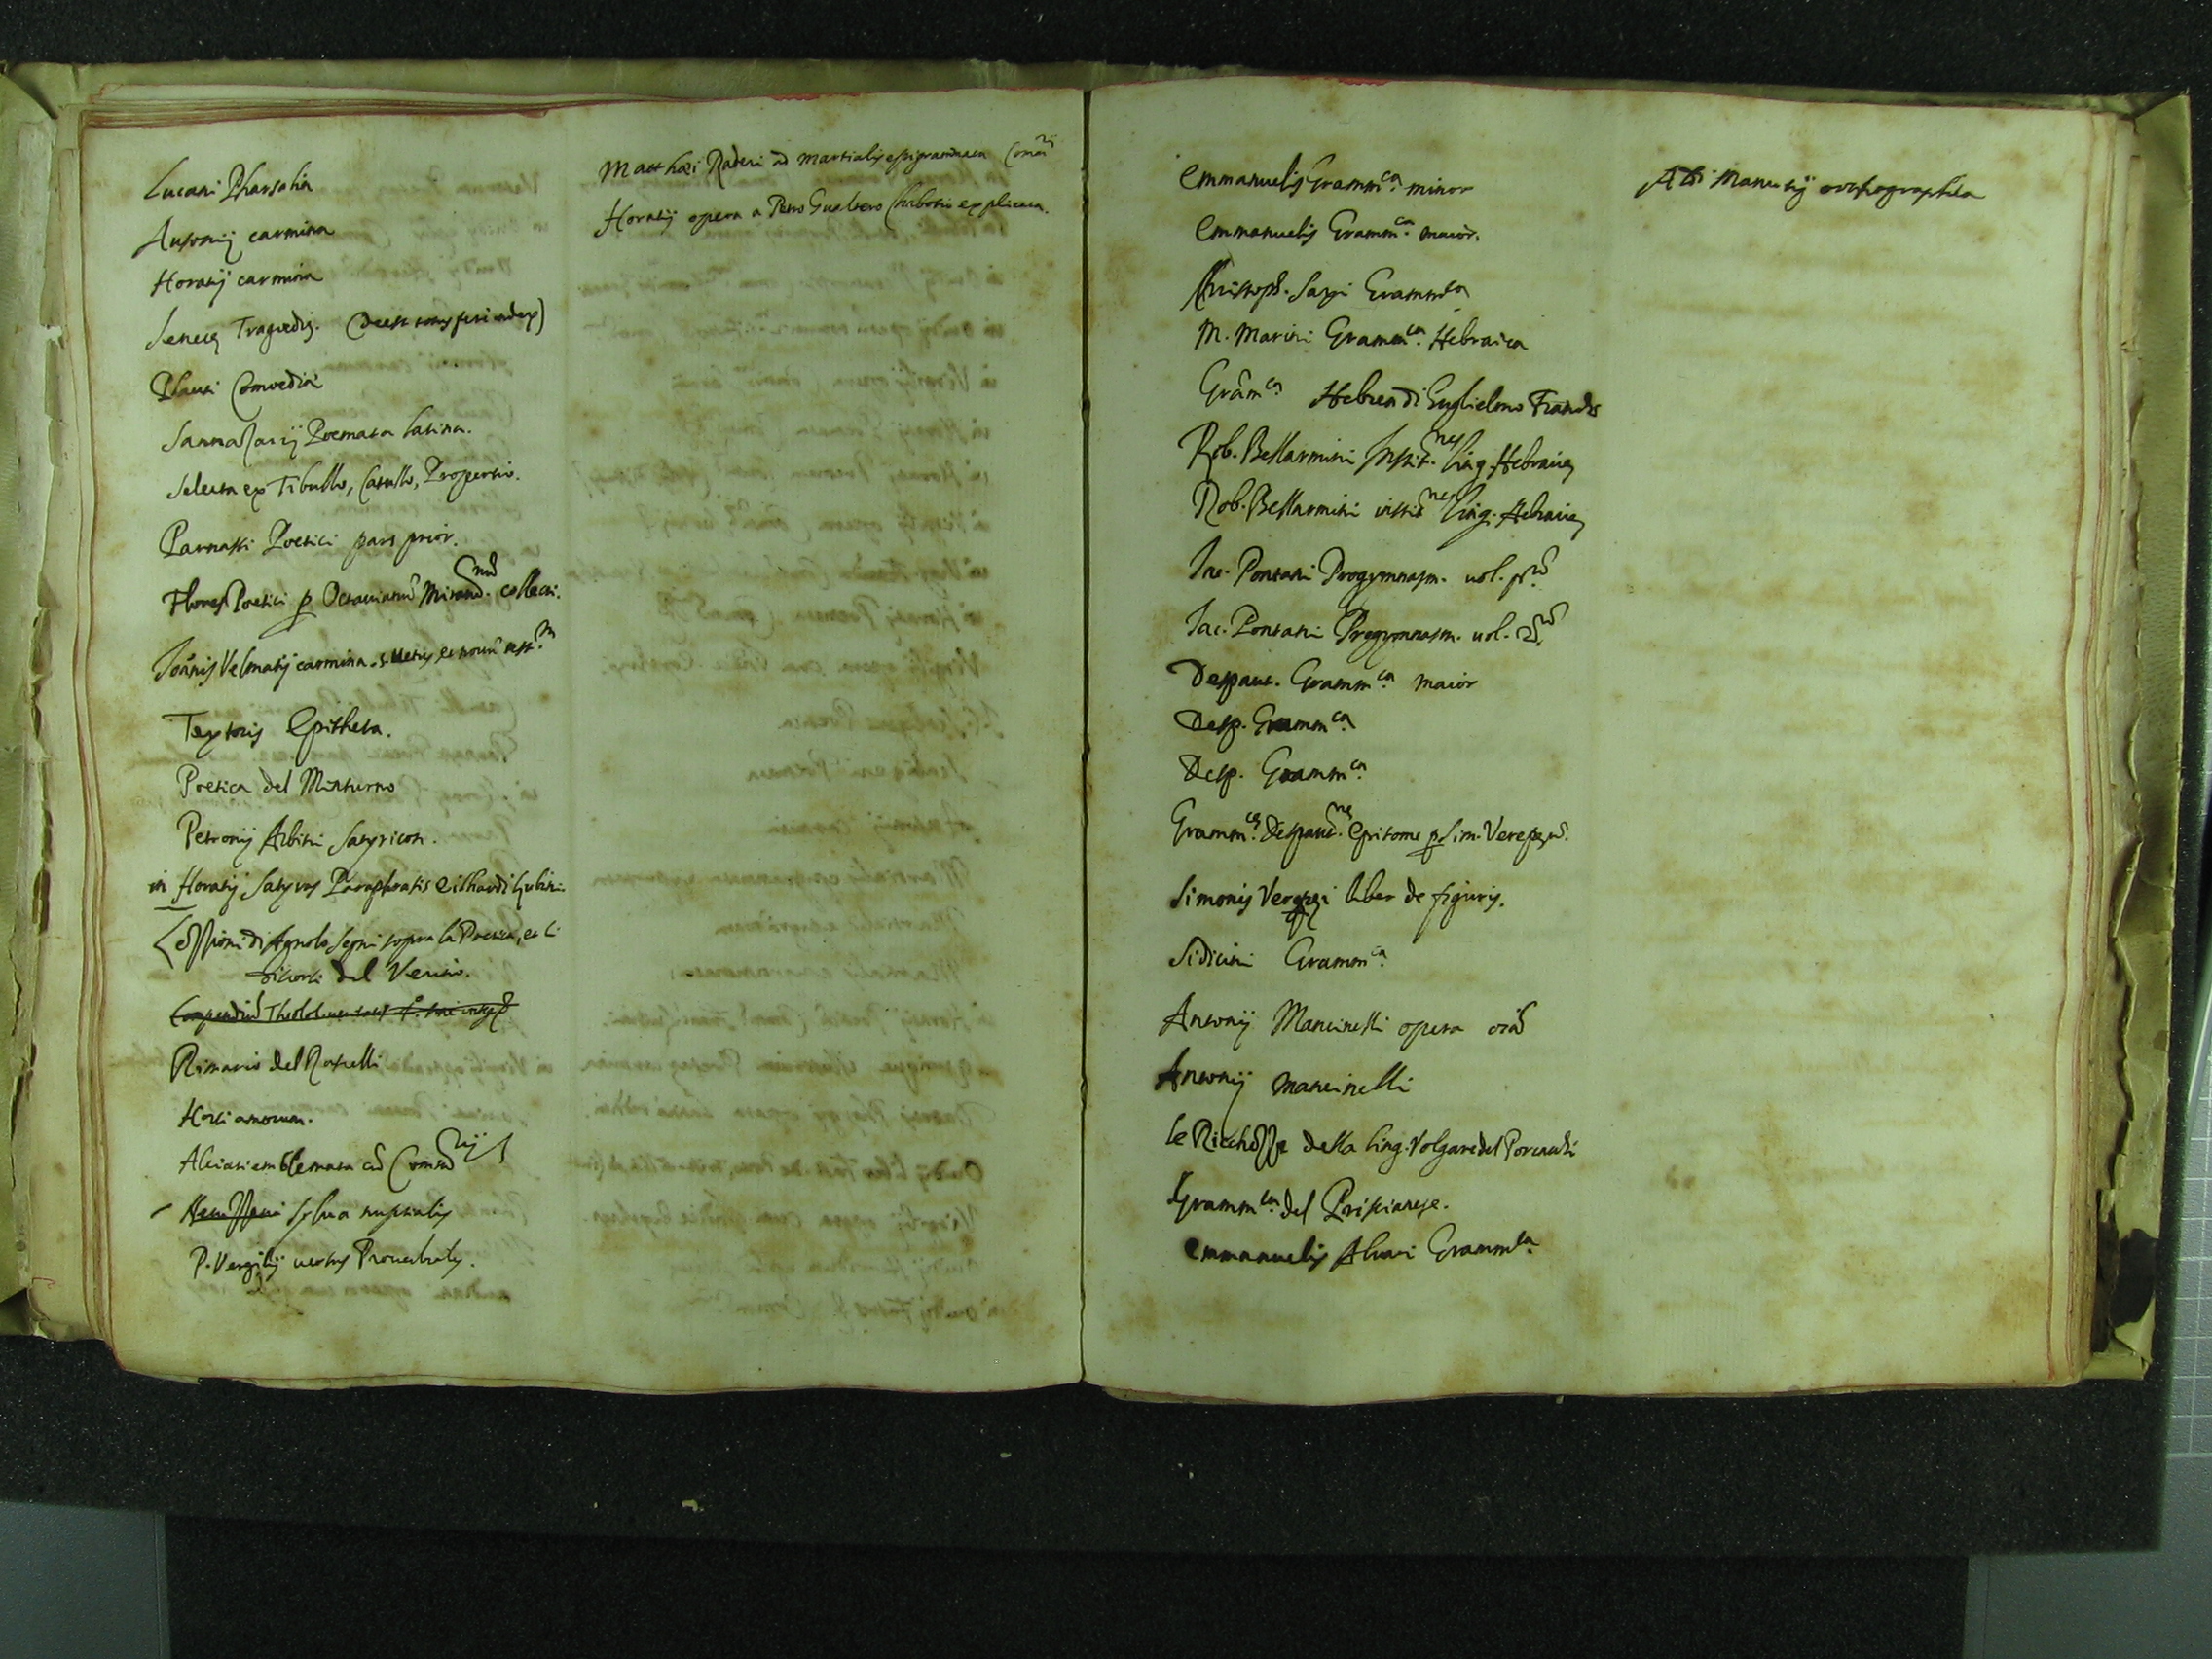 Lucani Pharsalia
Ausonij carmina
Horatij carmina
Senecę Tragoedię. (Deest totus feri index)
Plauti Comoediæ
Sannazarij Poemata latina.
Selecta ex Tibullo, Catullo, Propertio.
Parnassi Poetici pars prior.
Flores Poetici p Octauianū Mirand. collecti.
Joānis Velmatij carmina. s. Vetus et nouū test.m
Textoris Epitheta.
Poetica del Minturno
Petronij Arbitri Satyricon.
in Horatij Satyras Paraphrasis Eilhardi Lubini
Lezzioni di Agnolo Segni sopra la Poetica, et li
discorsi del Verino.
Compendiū
Rimario del Roscelli
Horti amorum.
Alciati emblemata cū Commrijs
Sylua nuptialis
P. Vergilij
Matthæi Raderi ad Martialis epigrammata Comrij
Horatij opera a Petro Gualtero Chabotio explicata.
Emmanuelis Gramm.ca minor
Emmanuelis Gramm.ca maior.
Christoph. Sassi Grammca
M. Marini Gramm.ca Hebraica
Grām.ca Hebrea di Guglielmo Franchi
Rob. Bellarmini Instit.nes ling. Hebraicę
Rob. Bellarmini instit.nes ling. Hebraicę
Iac. Pontani Progymnasm. uol. pr.m
Iac. Pontani Progymnasm. uol. 2.m
Despaut. Gramm.ca maior
Desp. Gramm.ca
Desp. Gramm.ca
Gramm.cę Despaut.nę Epitome p Sim. Verepęū.
Simonis Verepęi liber de figuris.
Sidicini Gramm.ca
Antonij Mancinelli opera oīa
Antonij Mancinelli
le Ricchezze della ling. Volgare del Porcacchi
Gramm.ca del Priscianese.
Emmanuelis Aluari Gramm.ca
Aldi Manutij orthographia